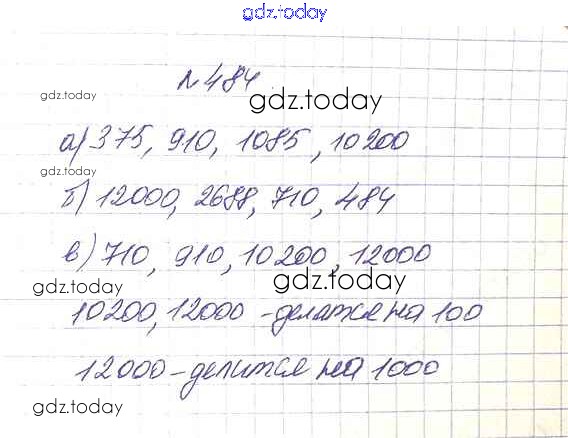 gdz.today
№484
gdz.today gdz.today
а) 375, 910, 1085, 10200
gdz.today
б) 12000, 2688, 710, 484
в) 710, 910, 10200, 12000
gdz.today gdz.today
10200, 12000 - делятся на 100
12000 - делится на 1000
gdz.today gdz.today